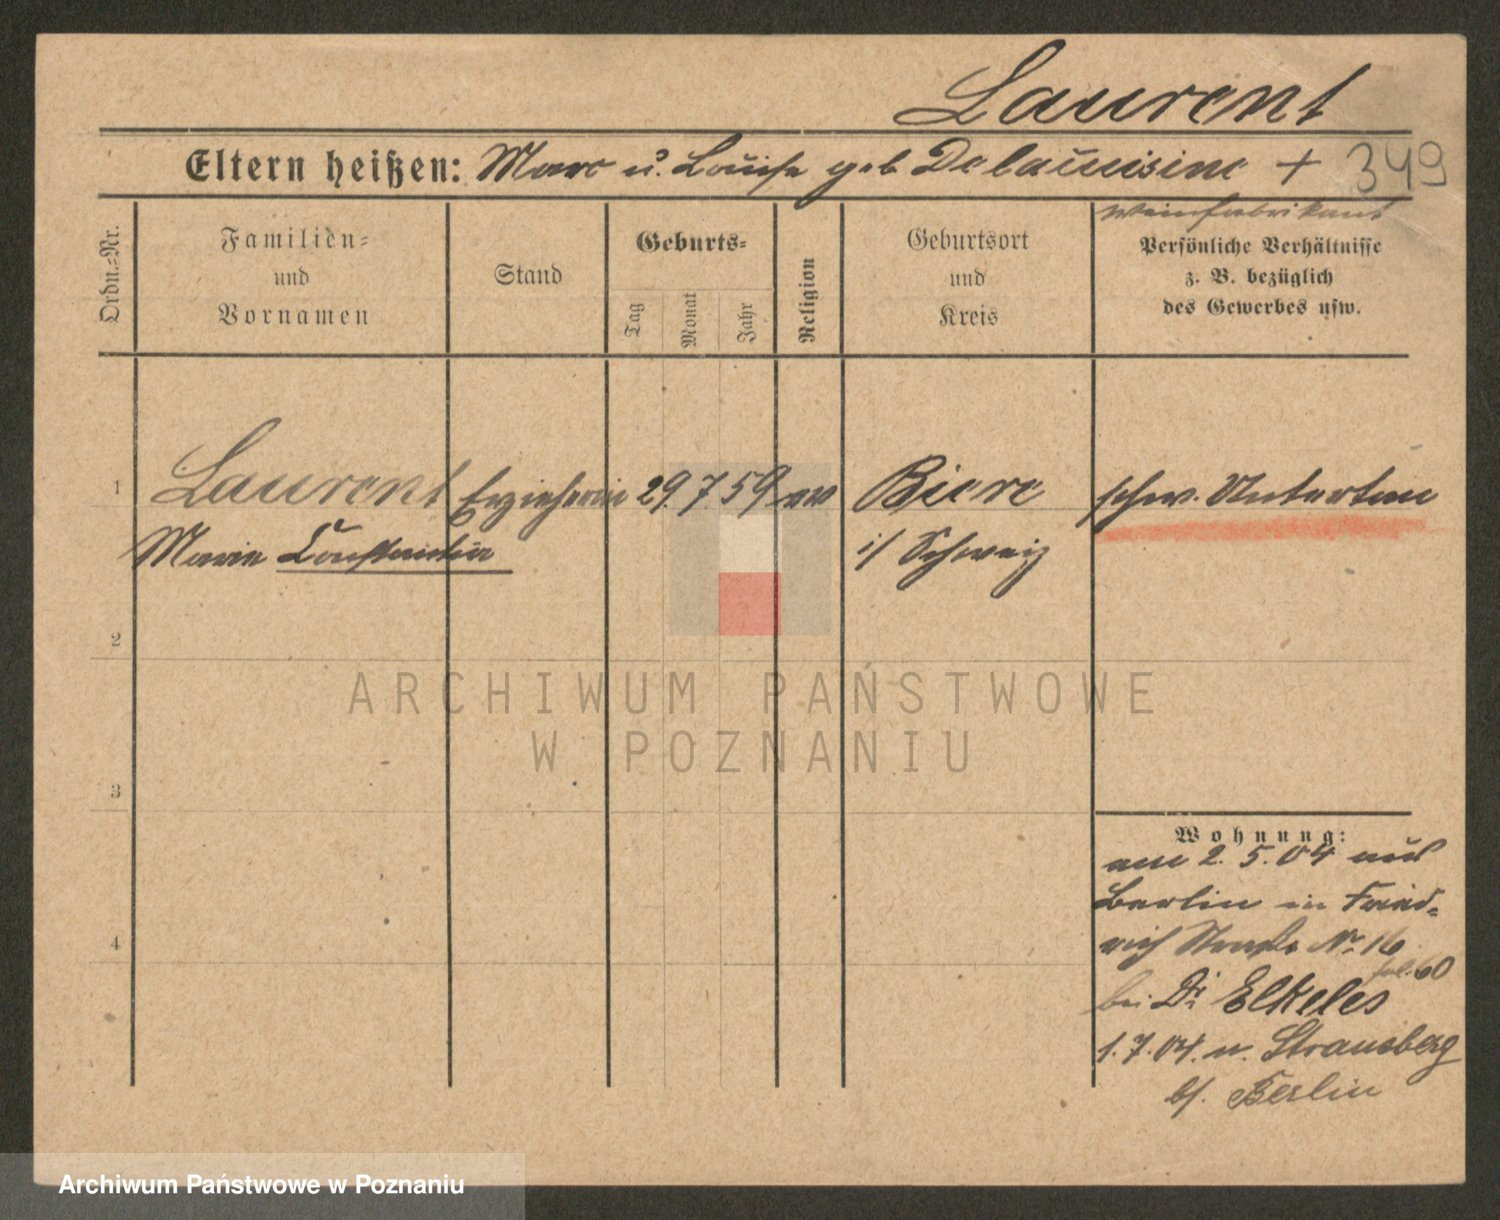 Laurent
Eltern heißen: Marc u. Louise geb Delauisine +
349
Weinfabrikant
Ordn.=Nr.
Familien=
und
Vornamen
Stand
Geburts=
Tag
Monat
Jahr
Religion
Geburtsort
und
Kreis
Persönliche Verhältnisse
z. B. bezüglich
des Gewerbes usw.
1 Laurent Erzieherin 29. 7. 59 ev Biere schw. Untertan
Marie i/ Schweiz
2
3
4
Wohnung:
am 2. 5. 04 aus
Berlin in Fried=
rich Straße No 16
fol. 60
bei Dr Elkeles
1. 7. 04. n. Strausberg
b/. Berlin
ARCHIWUM PAŃSTWOWE
W POZNANIU
Archiwum Państwowe w Poznaniu